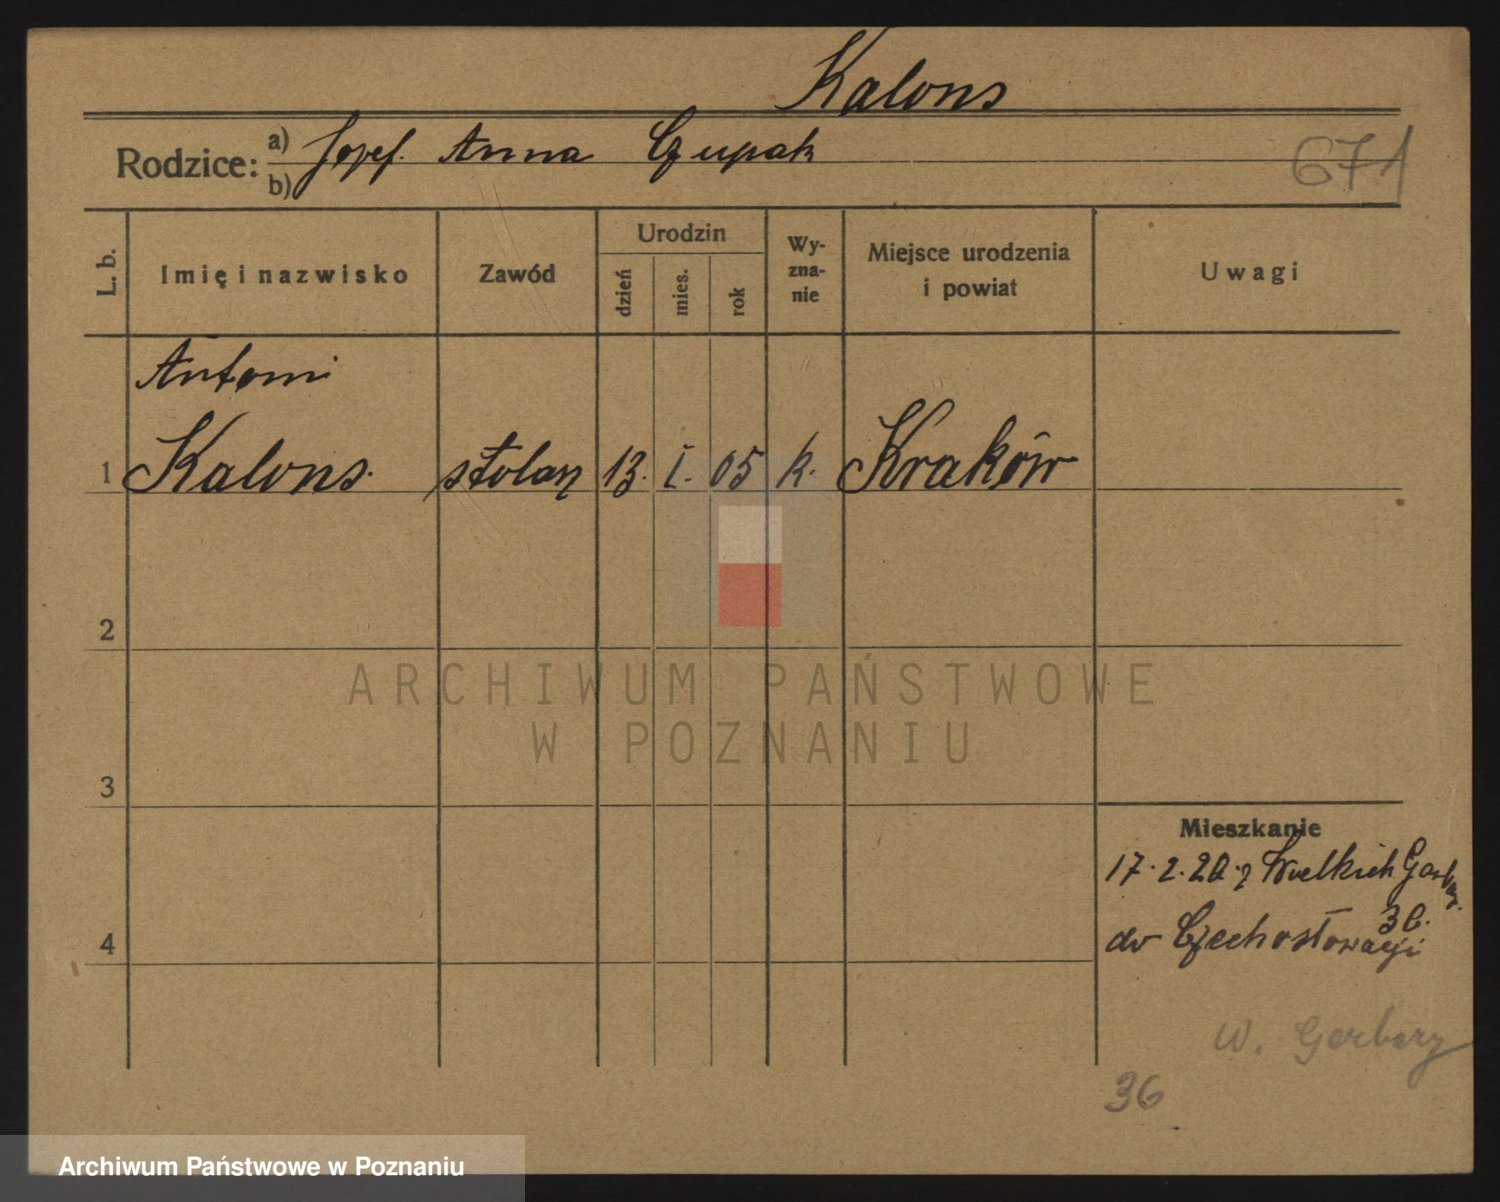 Kalons
Rodzice: a) Józef. Anna Czupak
b)
671
L. b. Imię i nazwisko Zawód Urodzin dzień mies. rok Wyznanie Miejsce urodzenia i powiat Uwagi
Antoni
1 Kalons. stolarz 13. I. 05 k. Kraków
2
ARCHIWUM PAŃSTWOWE
W POZNANIU
3
Mieszkanie
17. 2. 20. z Wielkich Garbar.
36.
4
do Czechosłowacji
W. Gerbery
36
Archiwum Państwowe w Poznaniu